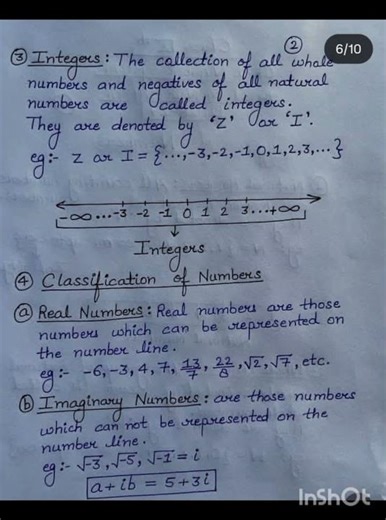 ②
6/10
③ Integers: The collection of all whole
numbers and negatives of all natural
numbers are called integers.
They are denoted by 'Z' or 'I'.
eg:- Z or I = {...,-3,-2,-1,0,1,2,3,...}
-∞ ...-3 -2 -1 0 1 2 3...+∞
Integers
④ Classification of Numbers
ⓐ Real Numbers: Real numbers are those
numbers which can be represented on
the number line.
eg:- -6,-3, 4, 7, 13/7, 22/8, √2, √7, etc.
ⓑ Imaginary Numbers: are those numbers
which can not be represented on the
number line.
eg:- √-3, √-5, √-1 = i
a+ib = 5+3i
InShOt